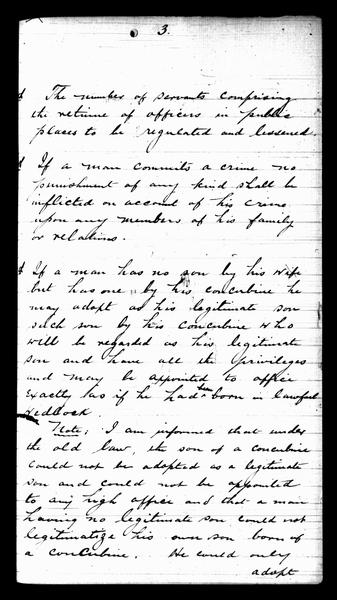 3.
The number of servants comprising
the retinue of officers in public
places to be regulated and lessened.
If a man commits a crime no
punishment of any kind shall be
inflicted on account of his crime
upon any members of his family
or relations.
If a man has no son by his wife
but has one by his concubine he
may adopt as his legitimate son
such son by his concubine who
will be regarded as his legitimate
son and have all the privileges
and may be appointed to office
exactly as if he had been born in lawful
wedlock.
Note; I am informed that under
the old law, the son of a concubine
could not be adopted as a legitimate
son and could not be appointed
to any high office and that a man
having no legitimate son could not
legitimatize his own son born of
a concubine. He could only
adopt